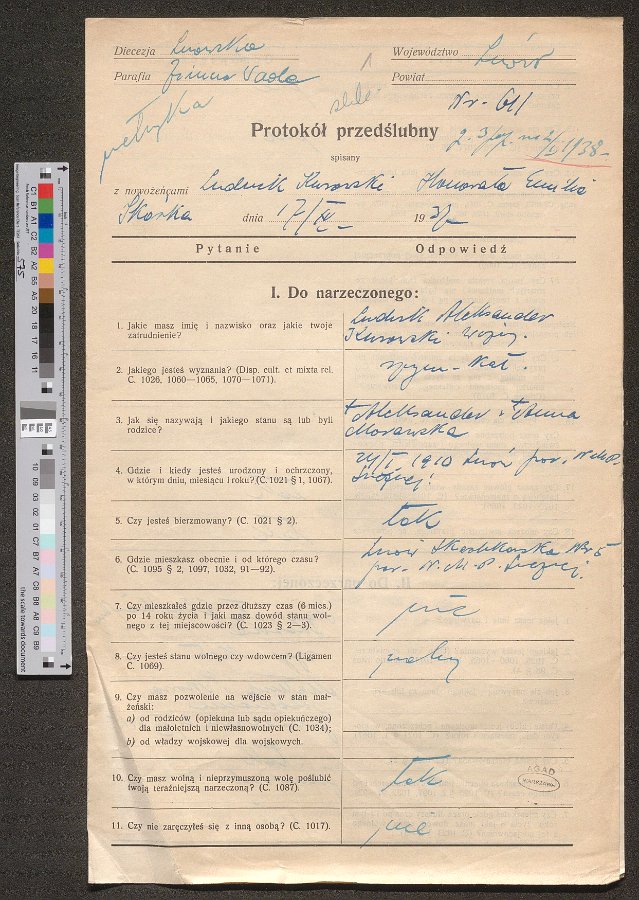 Diecezja Lwowska Województwo Lwów
Parafia Zimna Woda Powiat
metryka
Nr. 611
Protokół przedślubny
spisany
z nowożeńcami Ludwik Kurowski Honorata Emilia
Skórka dnia 17/ 193
Pytanie Odpowiedź
I. Do narzeczonego:
1. Jakie masz imię i nazwisko oraz jakie twoje
zatrudnienie?
Ludwik Aleksander
Kurowski
2. Jakiego jesteś wyznania? (Disp. cult. et mixta rel.
C. 1026, 1060—1065, 1070—1071).
rzym-kat.
3. Jak się nazywają i jakiego stanu są lub byli
rodzice?
†Aleksander i †Anna
Morawska
4. Gdzie i kiedy jesteś urodzony i ochrzczony,
w którym dniu, miesiącu i roku? (C. 1021 § 1, 1067).
24/I 1910 Lwów par. N.M.P.
Śnieżnej
5. Czy jesteś bierzmowany? (C. 1021 § 2).
tak
6. Gdzie mieszkasz obecnie i od którego czasu?
(C. 1095 § 2, 1097, 1032, 91—92).
Lwów Nr 5
par. N.M.P. Śnieżnej.
7. Czy mieszkałeś gdzie przez dłuższy czas (6 mies.)
po 14 roku życia i jaki masz dowód stanu wol-
nego z tej miejscowości? (C. 1023 § 2—3).
nie
8. Czy jesteś stanu wolnego czy wdowcem? (Ligamen
C. 1069).
wolny
9. Czy masz pozwolenie na wejście w stan mał-
żeński:
a) od rodziców (opiekuna lub sądu opiekuńczego)
dla małoletnich i niewłasnowolnych (C. 1034);
b) od władzy wojskowej dla wojskowych.
10. Czy masz wolną i nieprzymuszoną wolę poślubić
twoją teraźniejszą narzeczoną? (C. 1087).
tak
AGAD
WARSZAWA
11. Czy nie zaręczyłeś się z inną osobą? (C. 1017).
nie
C1 B1 A1 C2 B2 A2 B5 A5 20 18 17 16 11
10 09 03 02 01 C7 B7 A7 C8 B8 A8 C9 B9
the scale towards document